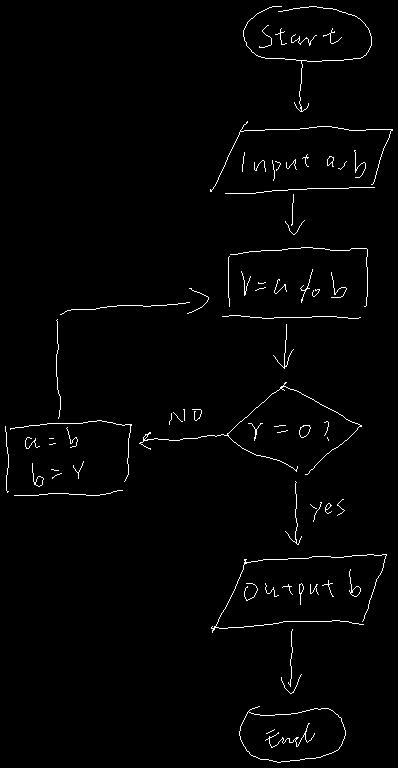 Start
Input a,b
r=a%b
r=0?
NO
a=b
b=r
yes
output b
End